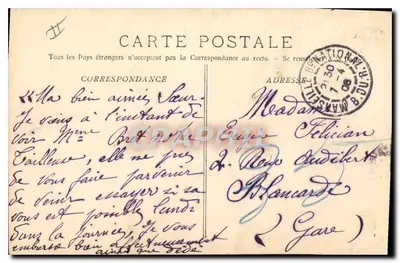 II
CARTE POSTALE
Tous les Pays étrangers n'acceptent pas la Correspondance au recto.
CORRESPONDANCE
ADRESSE
Ma bien aimée Sœur
Je viens à l'instant de
voir Mme Bret votre
tailleuse, elle me prie
de vous faire parvenir
de venir essayer si sa
vous est possible lundi
dans la journée, Je vous
embrasse bien affectueusement
ainsi que Dédé
Madame
Félicien
2. Rue Audibert
Blancarde
(Gare)
MARSEILLE Bd NATIONAL B. DU R.
7 -4
08